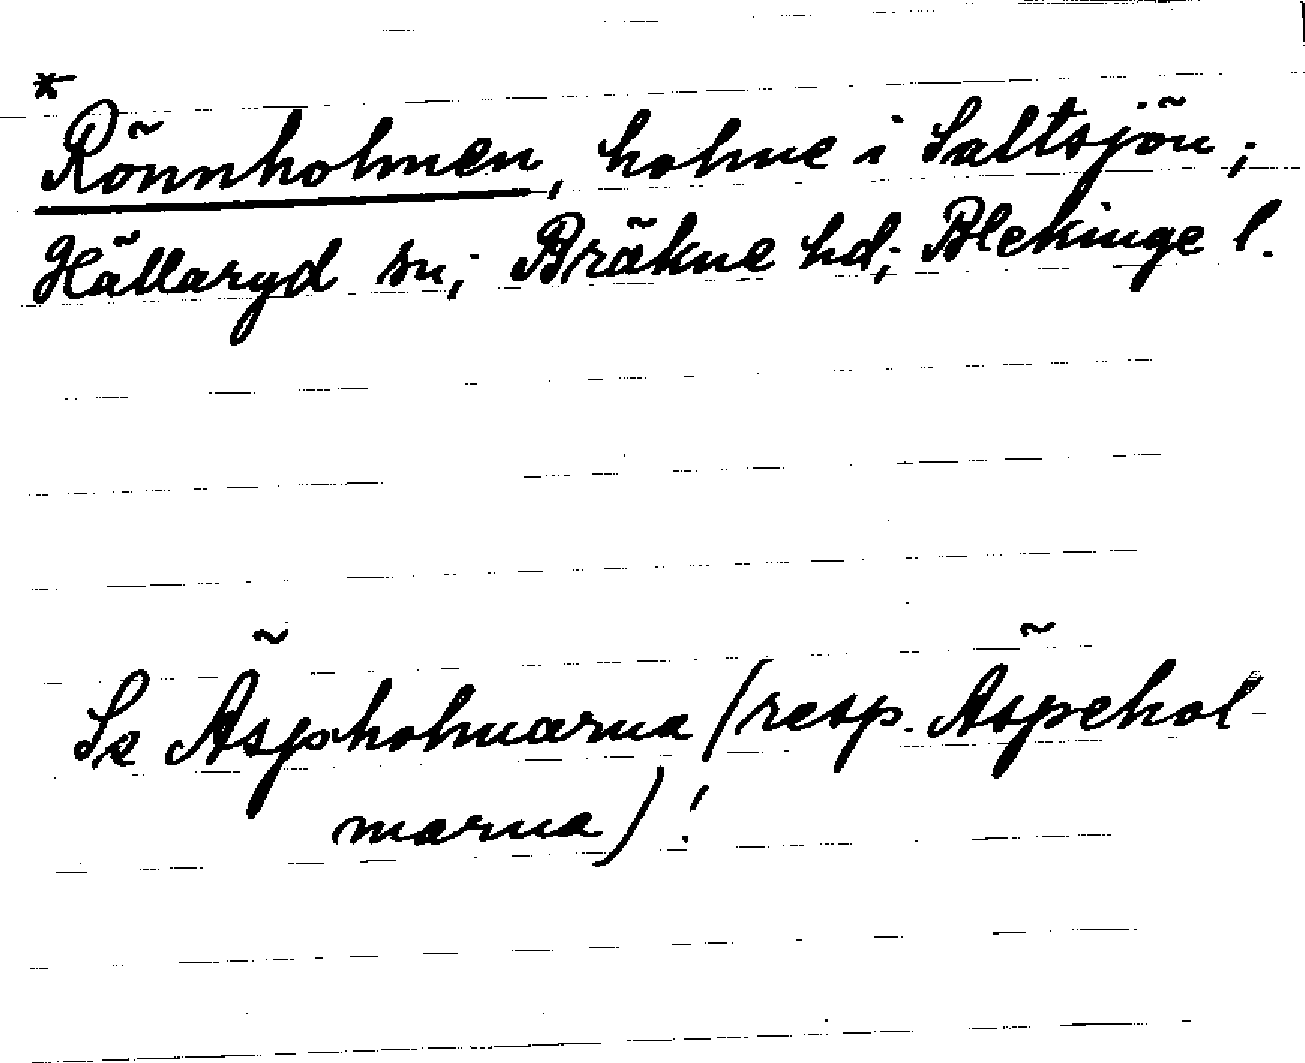 *
Rönnholmen, holme i Saltsjön;
Hällaryd sn; Bräkne hd; Blekinge l.
Se Äspholmarna (resp. Äspehol-
marna)!